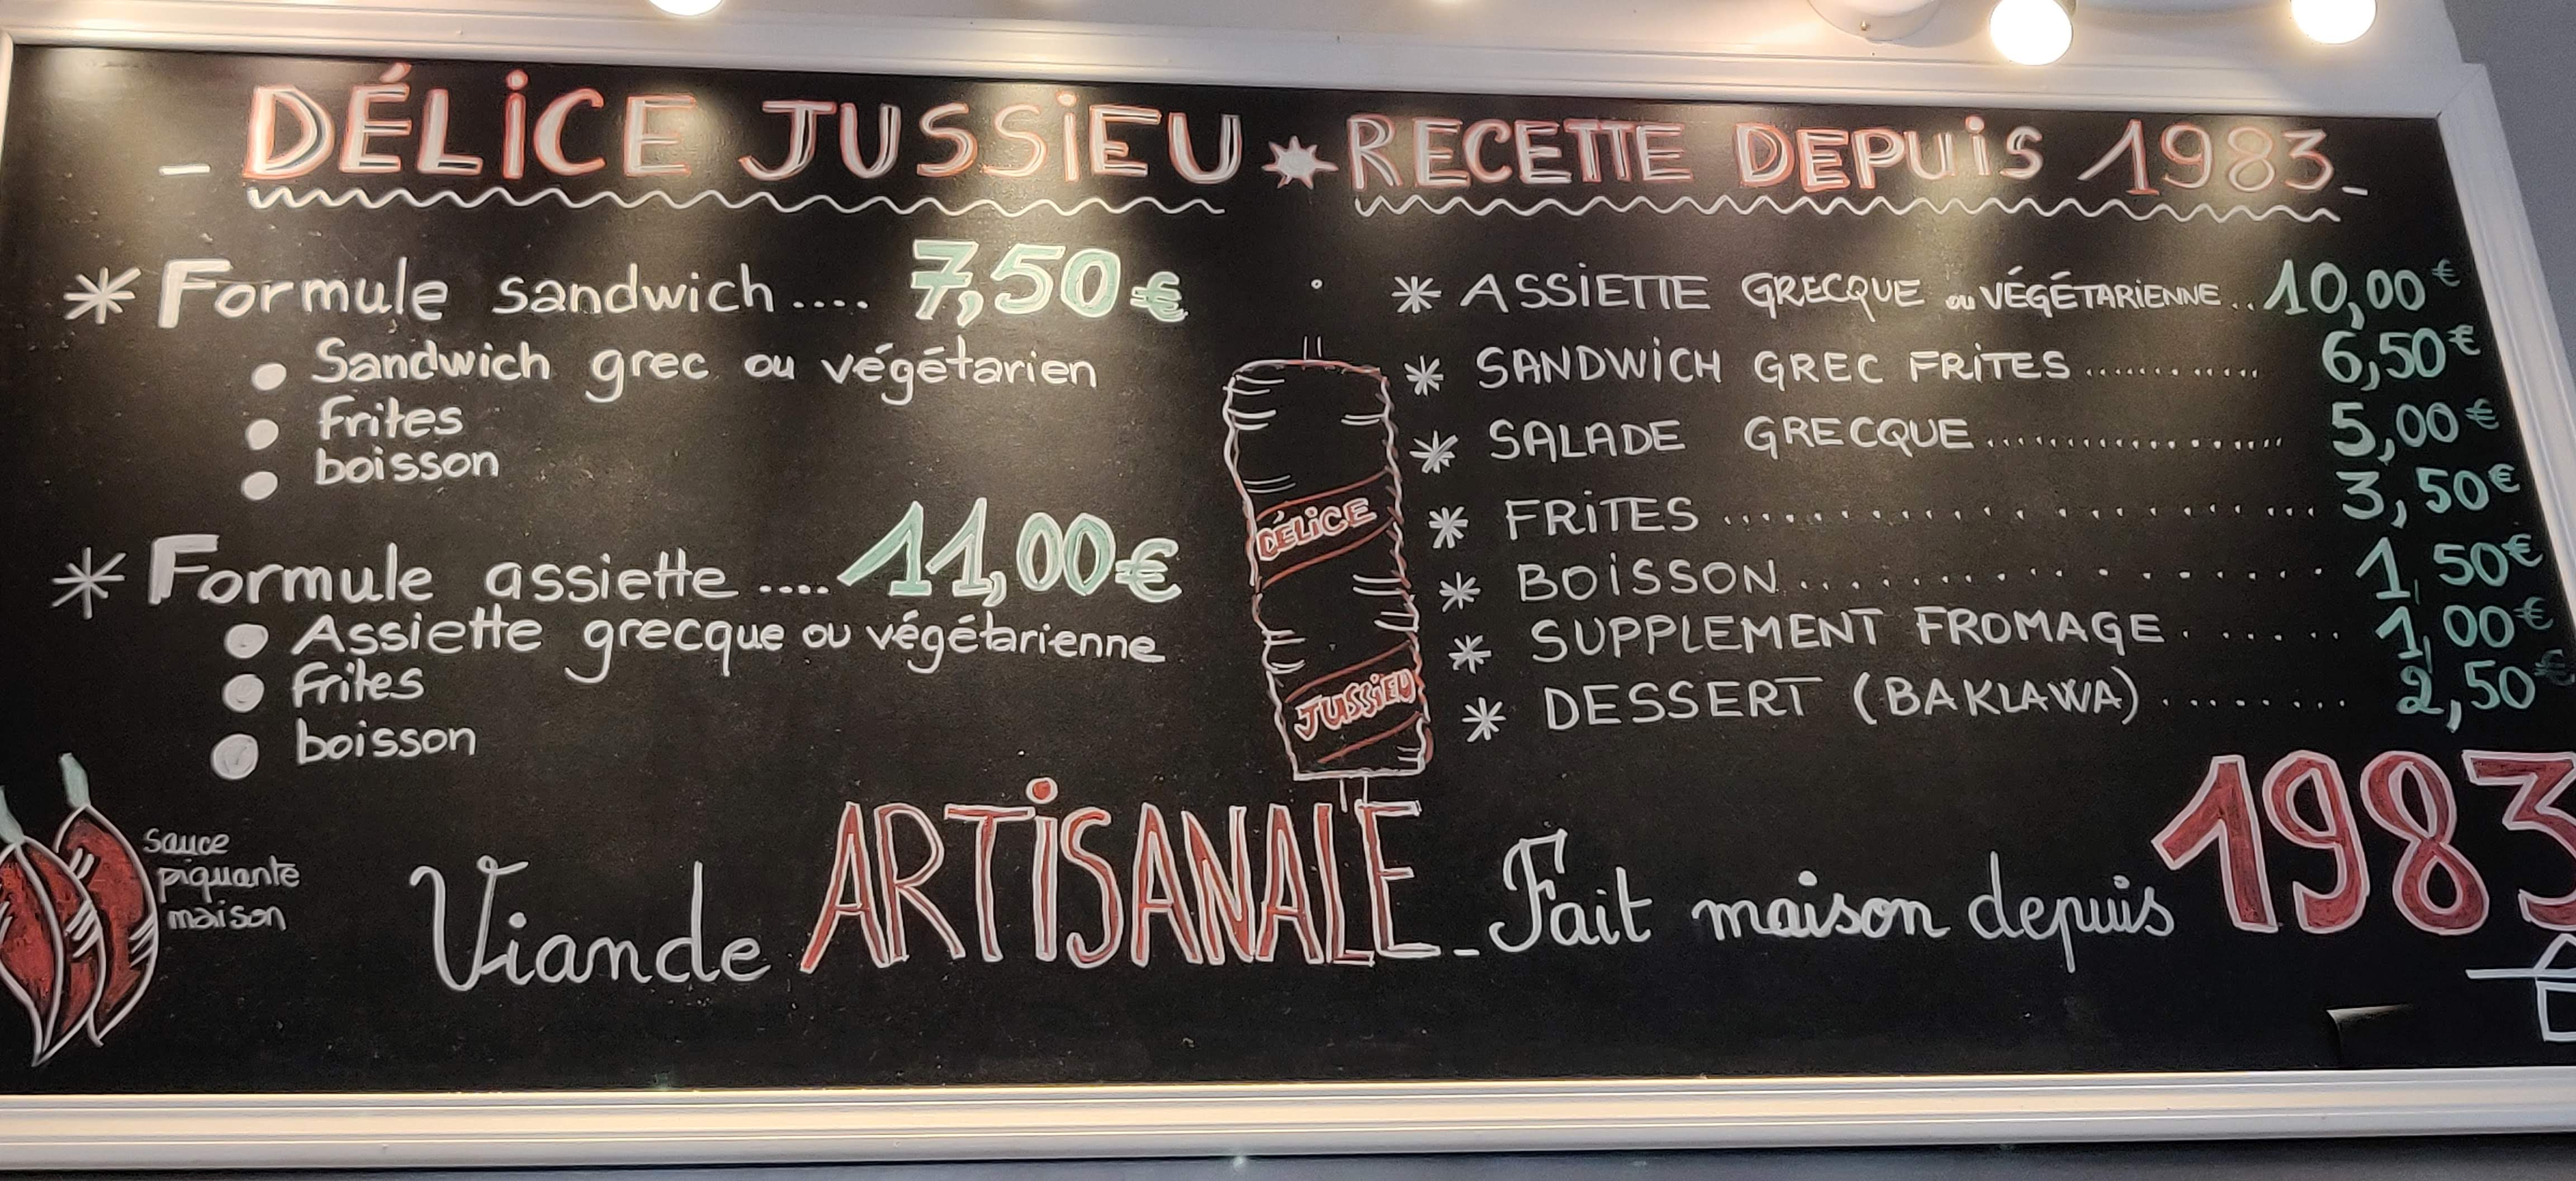 _ DÉLiCE JUSSiEU * RECETTE DEPUiS 1983_
* Formule sandwich .... 7,50€
● Sandwich grec ou végétarien
● Frites
● boisson
* Formule assiette .... 11,00€
● Assiette grecque ou végétarienne
● Frites
● boisson
* ASSiETTE GRECQUE ou VÉGÉTARiENNE.. 10,00€
* SANDWiCH GREC FRiTES ........... 6,50€
* SALADE GRECQUE ................. 5,00€
* FRiTES ..................... 3,50€
* BOiSSON .................. 1,50€
* SUPPLEMENT FROMAGE ...... 1,00€
* DESSERT (BAKLAWA) ........ 2,50€
DÉLiCE
JUSSiEU
sauce
piquante
maison
Viande ARTiSANALE _ Fait maison depuis 1983